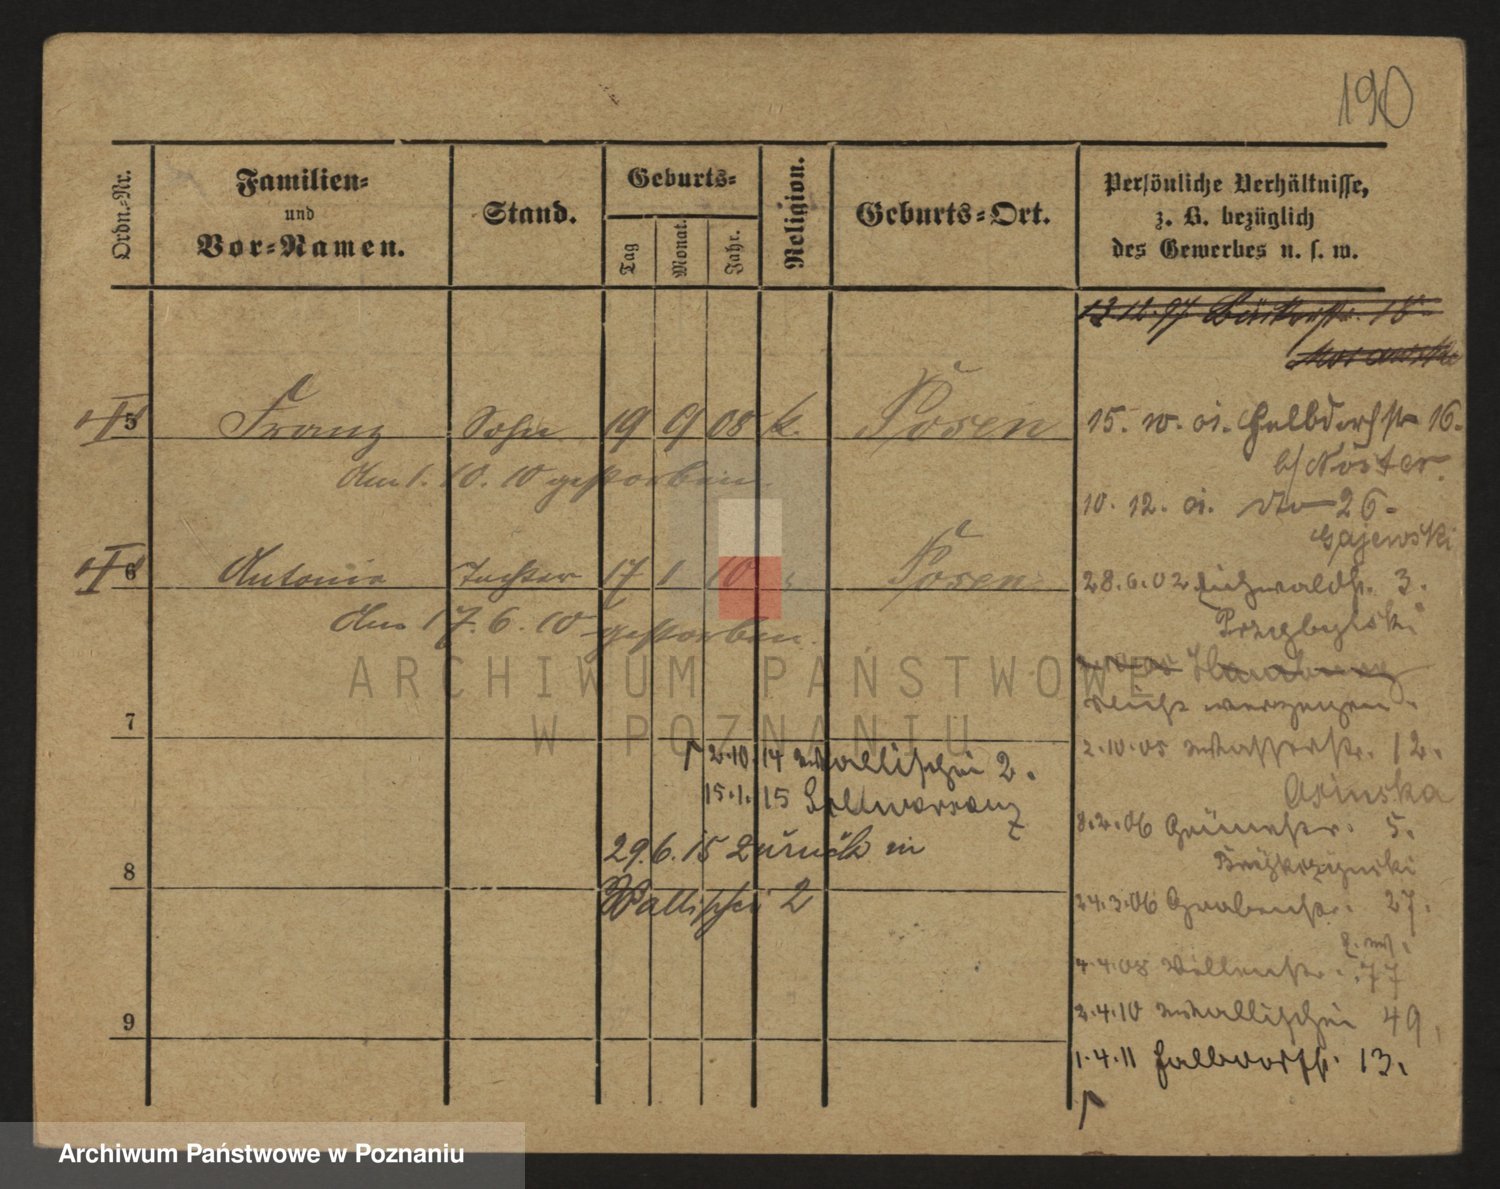 190
Ordn.-Nr.
Familien-
und
Vor-Namen.
Stand.
Geburts-
Tag
Monat.
Jahr.
Religion.
Geburts-Ort.
Persönliche Verhältnisse,
z. B. bezüglich
des Gewerbes u. s. w.
13.12.97 Bäckerstr. 18
5 Franz Sohn 19 9 08 k. Posen
den 1. 10. 10 gestorben.
6 Antonie Tochter 17 1 10 " Posen
den 17. 6. 10 gestorben.
7
8
9
15. 10. 01. Halbdorfstr 16.
b/ Nöster
10. 12. 01. dto 26.
Gajewski
28.6.02 Eichwaldstr. 3.
Przybylski
Hamburg
nicht verzogen.
2.10.05 Wasserstr. 12.
Asinska
8.2.06 Grünestr. 5.
24.3.06 Grabenstr. 27.
4.4.08 Villenstr. 77
2.4.10 Wallischei 49,
1.4.11 Halbdorfstr. 13.
2.10.14 Wallischei 2.
15.1.15
29.6.15 Zurück in
Wallischei 2
ARCHIWUM PAŃSTWOWE
W POZNANIU
Archiwum Państwowe w Poznaniu